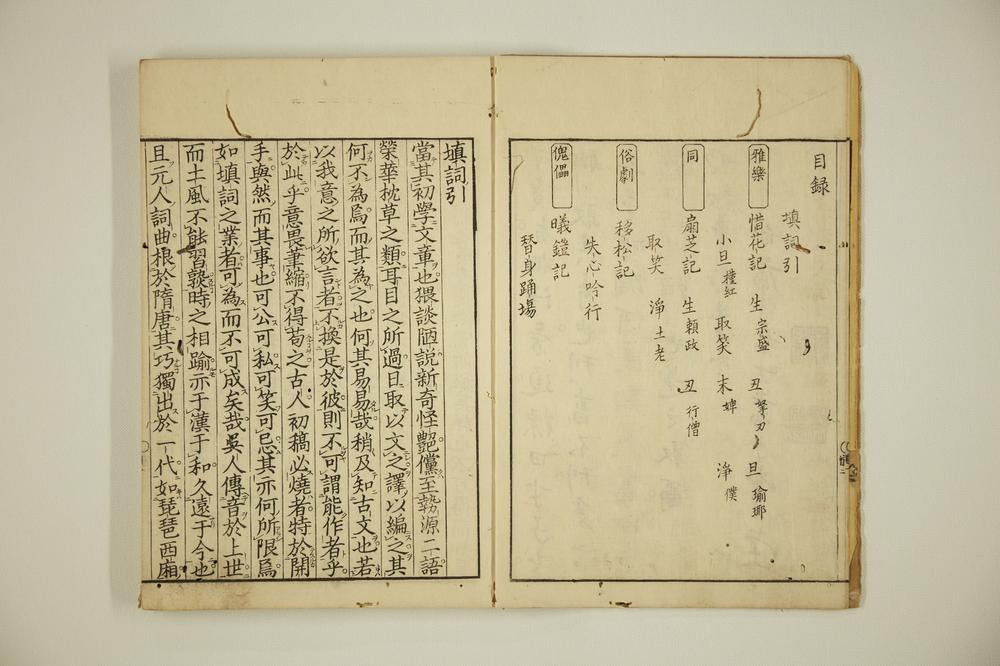 目録
填詞引
雅樂 惜花記 生 宗盛 丑 拏刀 旦 瑜瑯
小旦 樺紅 取笑 末 婢 淨 僕
同 扇芝記 生 頼政 丑 行僧
取笑 淨 土老
俗劇 移松記
朱心吟行
傀儡 曦鎧記
替身踊場
填詞引
當其初學文章也猥談陋説新奇怪艷儻至勢源二語
榮華枕草之類耳目之所過日取以文之譯以編之其
何不為焉而其為之也何其易易哉稍及知古文也若
以我意之所欲言者不換是於彼則不可謂能作者乎
於此乎意畏筆縮不得苟之古人初稿必燒者特於開
手與然而其事也可公可私可笑可忌其亦何所限焉
如填詞之業者可為而不可成矣哉吳人傳音於上世
而土風不能習歟時之相踰亦于漢于和久遠于今也
且元人詞曲根於隋唐其巧獨出於一代如琵琶西廂